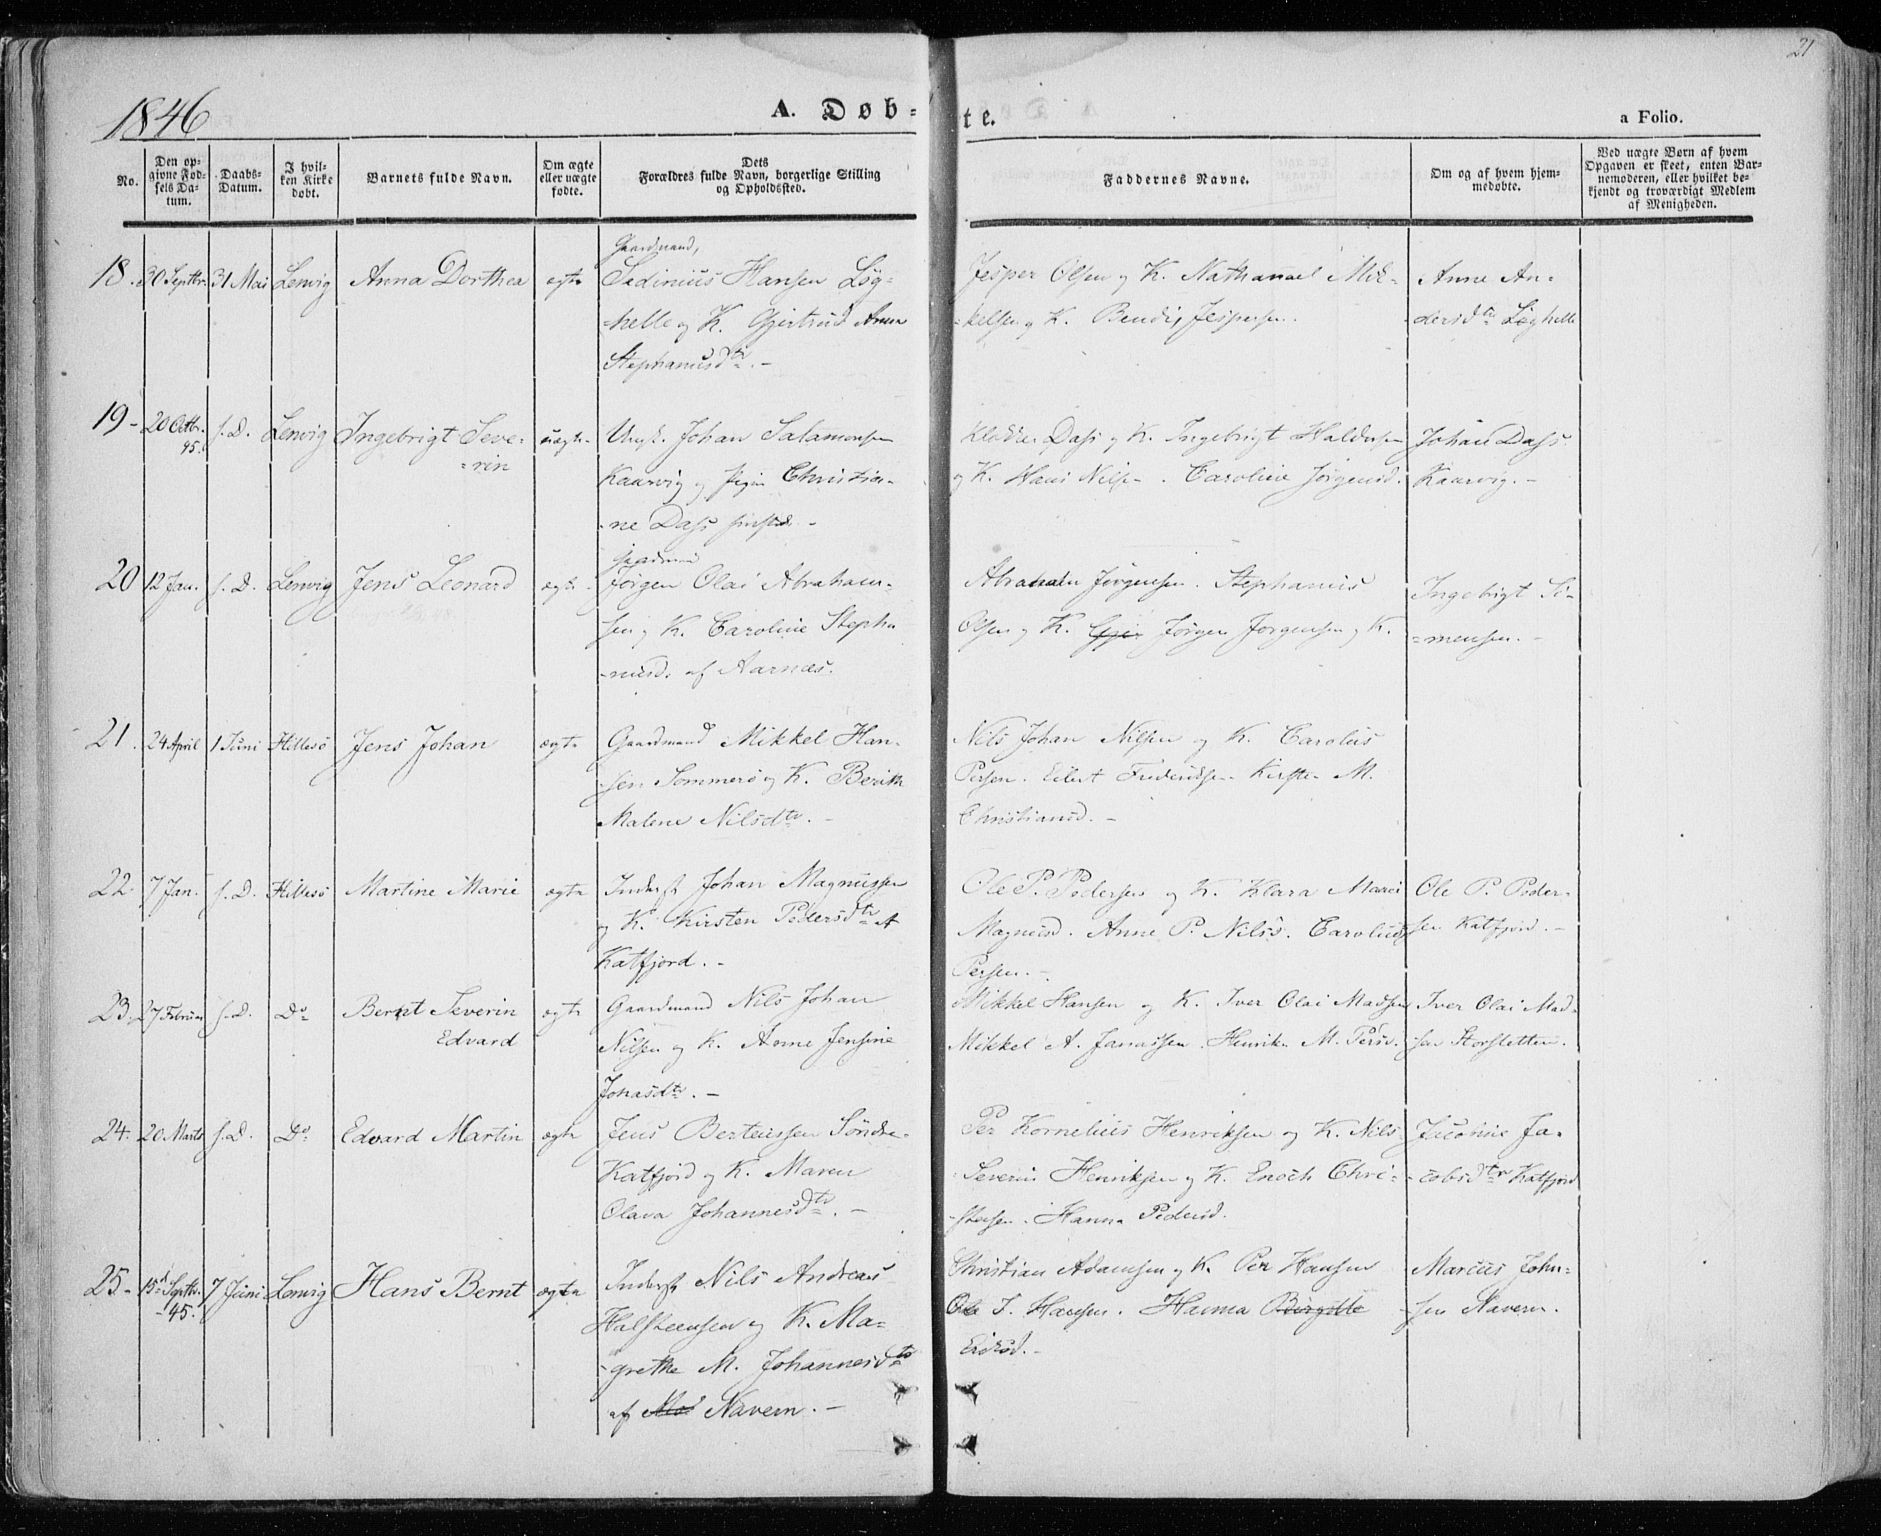 21
1846
A. Døb-
te.
a Folio.
No.
Den op-
givne Fød-
sels Da-
tum.
Daabs-
Datum.
I hvil-
ken Kirke
døbt.
Barnets fulde Navn.
Om ægte
eller uægte
fødte.
Dets
Forældres fulde Navn, borgerlige Stilling
og Opholdssted.
Faddernes Navne.
Om og af hvem hjem-
medøbte.
Ved uægte Børn af hvem
Opgaven er skeet, enten Bar-
nemoderen, eller hvilket be-
kjendt og troværdigt Medlem
af Menigheden.
18. 30 Septbr. 31 Mai Lenvig Anna Dorthea egte
Gaardmand,
Sadinius Hansen Løg-
-helle og K. Gjertrud Anna
Stephanusdtr. -
Jesper Olsen og K. Nathanael Mik-
-kelsen og K. Bendix Jespersen.
Anne An-
dersdtr Løghelle
19- 20 Octbr. 45. s. D. Lenvig Ingebrigt Seve-
=rin
uægte.
Ungk. Johan Salamonsen
Kaarvig og Pigen Christia-
-ne Dass -
Dass og K. Ingebrigt Haldorsen
og K. Hans Nils- . Caroline Jørgensd.
Johan Dass
Kaarvig. -
20 12 Jan. s. D. Lenvig Jens Leonard ægte.
Gaardmand
Jørgen Olai Abraham-
sen og K. Caroline Stepha
-nusd. af Aarnæs.
Abraham Jørgensen. Stephanus
Olsen og K. Gjer Jørgen Jørgensen og K.
Ingebrigt Si-
=monsen. -
21. 24 April 1 Juni Hillesø Jens Johan ægte
Gaardmand Mikkel Han-
-sen Sommerø og K. Berith
Malene Nilsdtr. -
Nils Johan Nilsen og K. Carolus
Persen. Eilert Frederiksen Kirsten M.
Christiansd. -
22. 7 Jan. s. D. Hillesø Martine Marie ægte
Inderst Johan Magnussen
og K. Kirsten Pedersdtr
Katfjord. -
Ole P. Pedersen og K. Klara Marie
Magnusd. Anne P. Nilsd. Carolus
Persen. -
Ole P. Peder-
sen Katfjord. -
23. 27 Februar s. D. Do Bernt Severin
Edvard
ægte
Gaardmand Nils Johan
Nilsen og K. Anne Jensine
Jonasdtr. -
Mikkel Hansen og K. Iver Olai Madsen
Mikkel A. Jonassen. Henrik M. Persd.
Iver Olai Mad-
-sen Storsletten.
24. 20 Marts s. D. Do Edvard Martin ægte
Jens Berteussen Søndre-
Katfjord og K. Maren
Olava Johannesdtr. -
Per Kornelius Henriksen og K. Nils
-Severin Henriksen og K. Enoch Chri-
-stensen. Hanna Pedersd.
Jacobine Ja-
-cobsdtr Katfjord
25- 15d Septbr. -45. 7 Juni Lenvig Hans Bernt ægte
Inderst Nils Andreas
Halsteensen og K. Ma-
-grethe M. Johannesdtr
af Mo Navern. -
Christian Adamsen og K. Per Hansen
Ole J. Hansen. Hanna Birgitte
Eriksd. -
Marcus John-
-sen Navern.